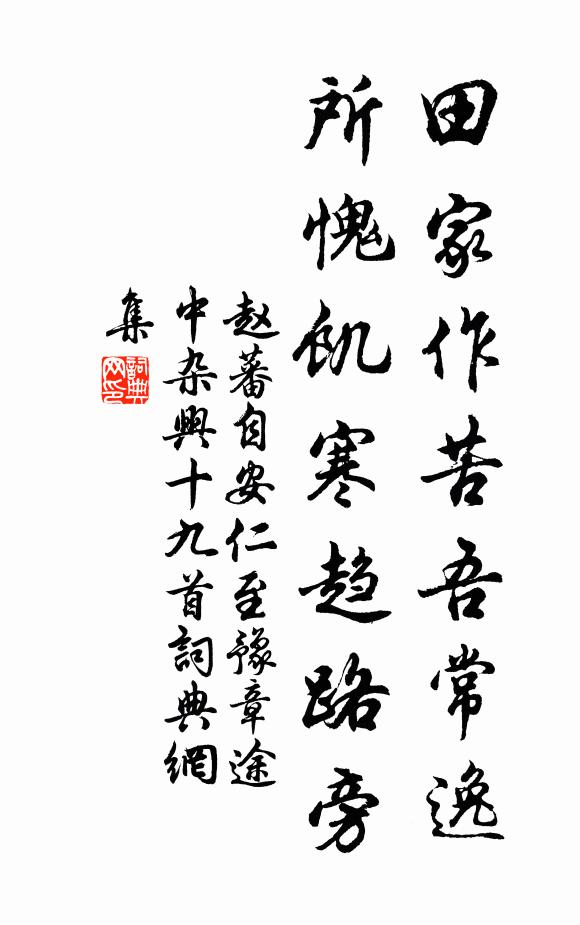 田家作苦吾常逸
所愧飢寒趋路旁
赵蕃自安仁至豫章途
中杂興十九首詞典網
集
詞典
网印